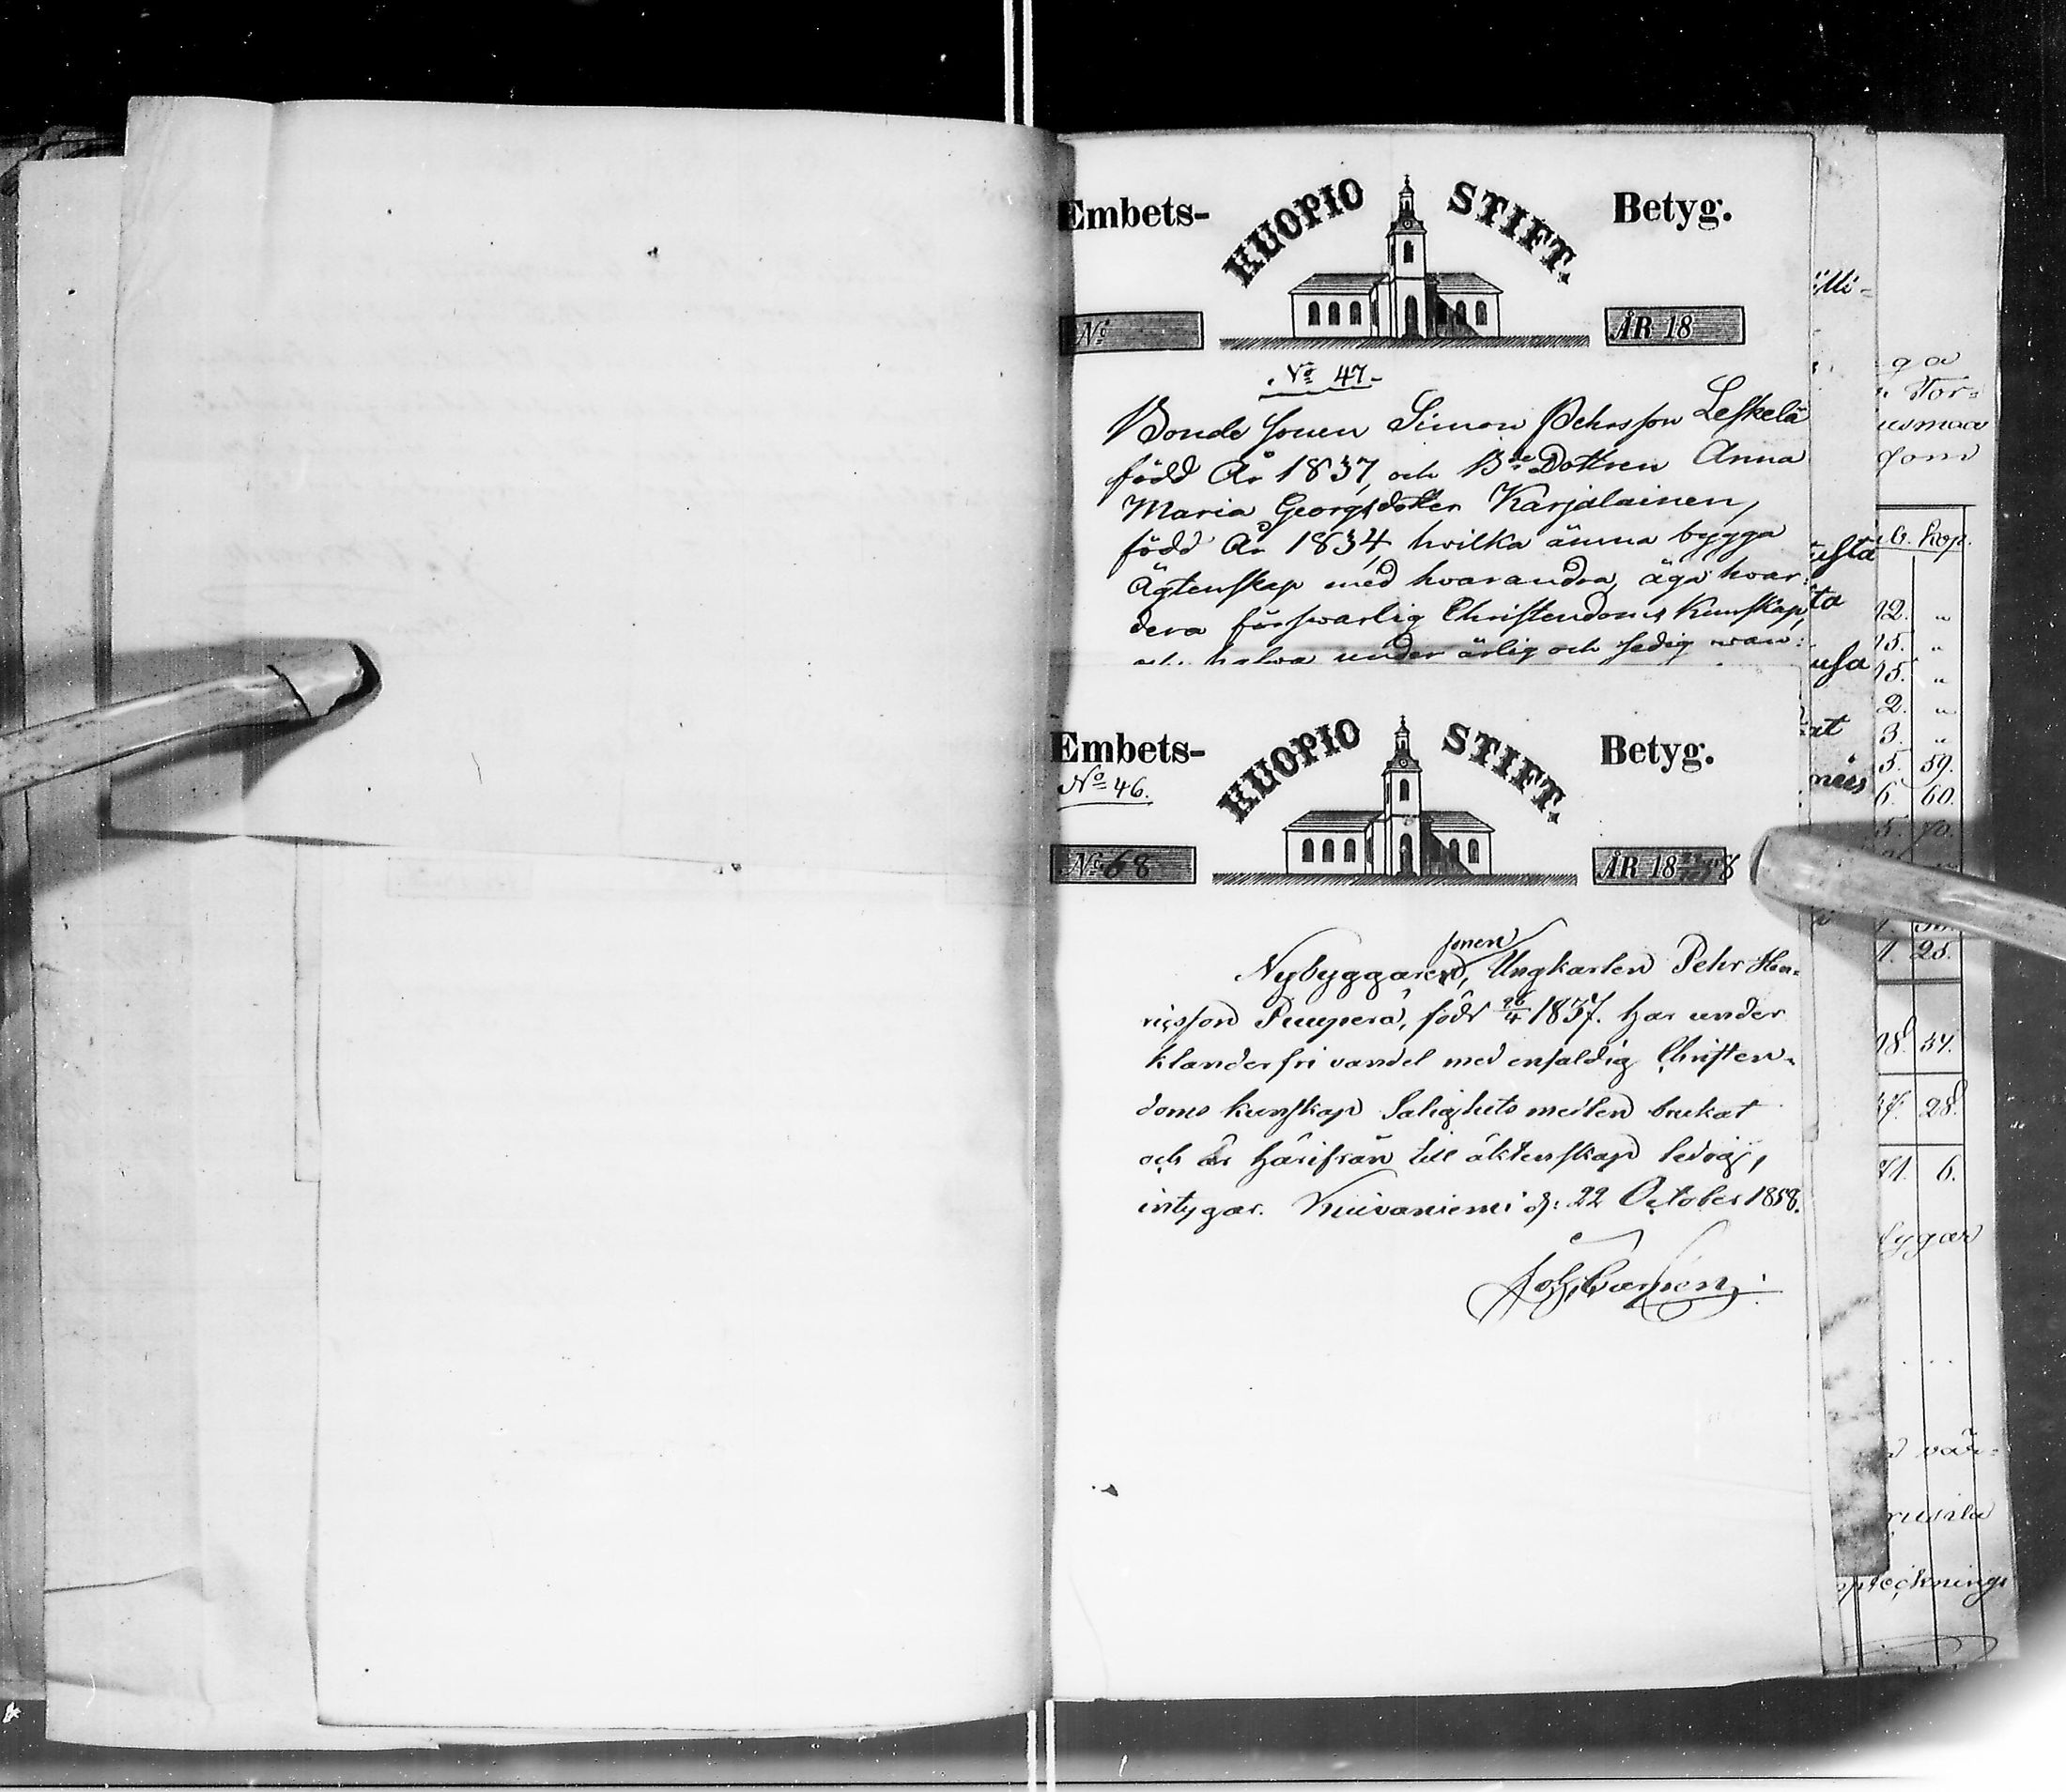 Embets- KUOPIO STIFT. Betyg.
No ÅR 18
No 47.
Bonde sonen Simon Pehrsson Leskelä
född År 1837, och Bde Dottren Anna
Maria Georgsdotter Karjalainen,
född År 1834, hvilka ämna bygga
Ägtenskap med hvarandra, äga hvar:
dera försvarlig Christendoms Kunskap,
under ärlig och sedig wan:
Embets- KUOPIO STIFT. Betyg.
No 46.
No 68 ÅR 1858
sonen
Nybyggaren, Ungkarlen Pehr Hen-
ricsson Puuperä, född 26/4 1837. har under
klanderfri vandel med enfaldig Christen-
doms kunskap Salighets medlen brukat
och är härifrån till äktenskap ledig,
intygar. Kuivaniemi d: 22 October 1858.
ga
Stor=
usmaa
som
Kop.
12. "
15. "
15. "
2. "
3. "
5. 59.
6. 60.
5. 70.
1. 25.
18. 54.
28.
71. 6.